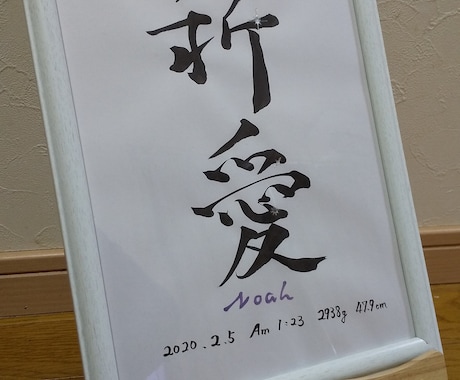 新
愛
Noah
2020.2.5 Am 1:23 2938g 47.9cm